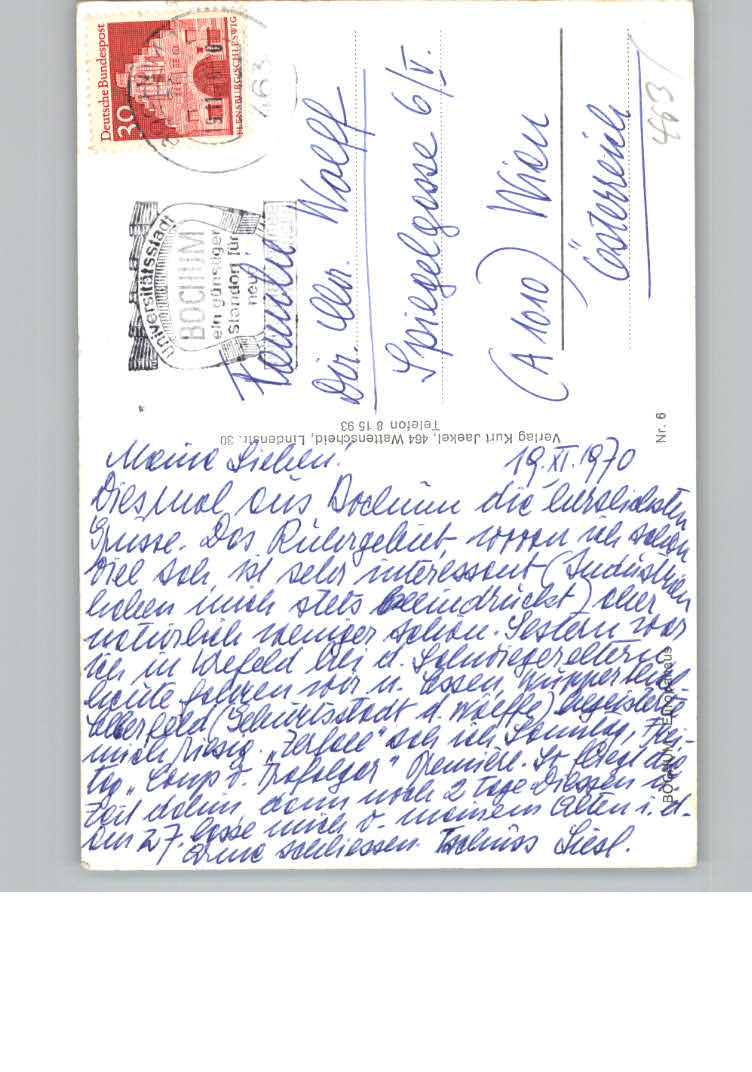 Deutsche Bundespost
30
FLENSBURG/SCHLESWIG
463
Universitätsstadt
BOCHUM
ein günstiger
Standort für
neue
Familie
Dir. Wolff
Spiegelgasse 6/V.
(A 1010) Wien
Österreich
463
Verlag Kurt Jaekel, 464 Wattenscheid, Lindenstr. 30
Telefon 8 15 93
Nr. 6
BOCHUM - Europahaus
Meine Lieben! 19. XI. 1970
Diesmal aus Bochum die herzlichsten
Grüsse. Das Ruhrgebiet, wovon ich schon
viel sah, ist sehr interessant (Industrien
haben mich stets beeindruckt) aber
natürlich weniger schön. Gestern war
ich in Krefeld bei d. Schwiegereltern
heute fahren wir n. Essen, Wuppertal
Elberfeld (Geburtsstadt d. Wolffe) begeisterte
mich riesig. „Zerfall" sah ich Sonntag, Frei-
tag „Coup v. Trafalgar" Premiere. So fliegt die
Zeit dahin dann noch 2 Tage Giessen u.
am 27. lasse mich v. meinem Alten i. d.
Arme schliessen. Tschüss Liesl.